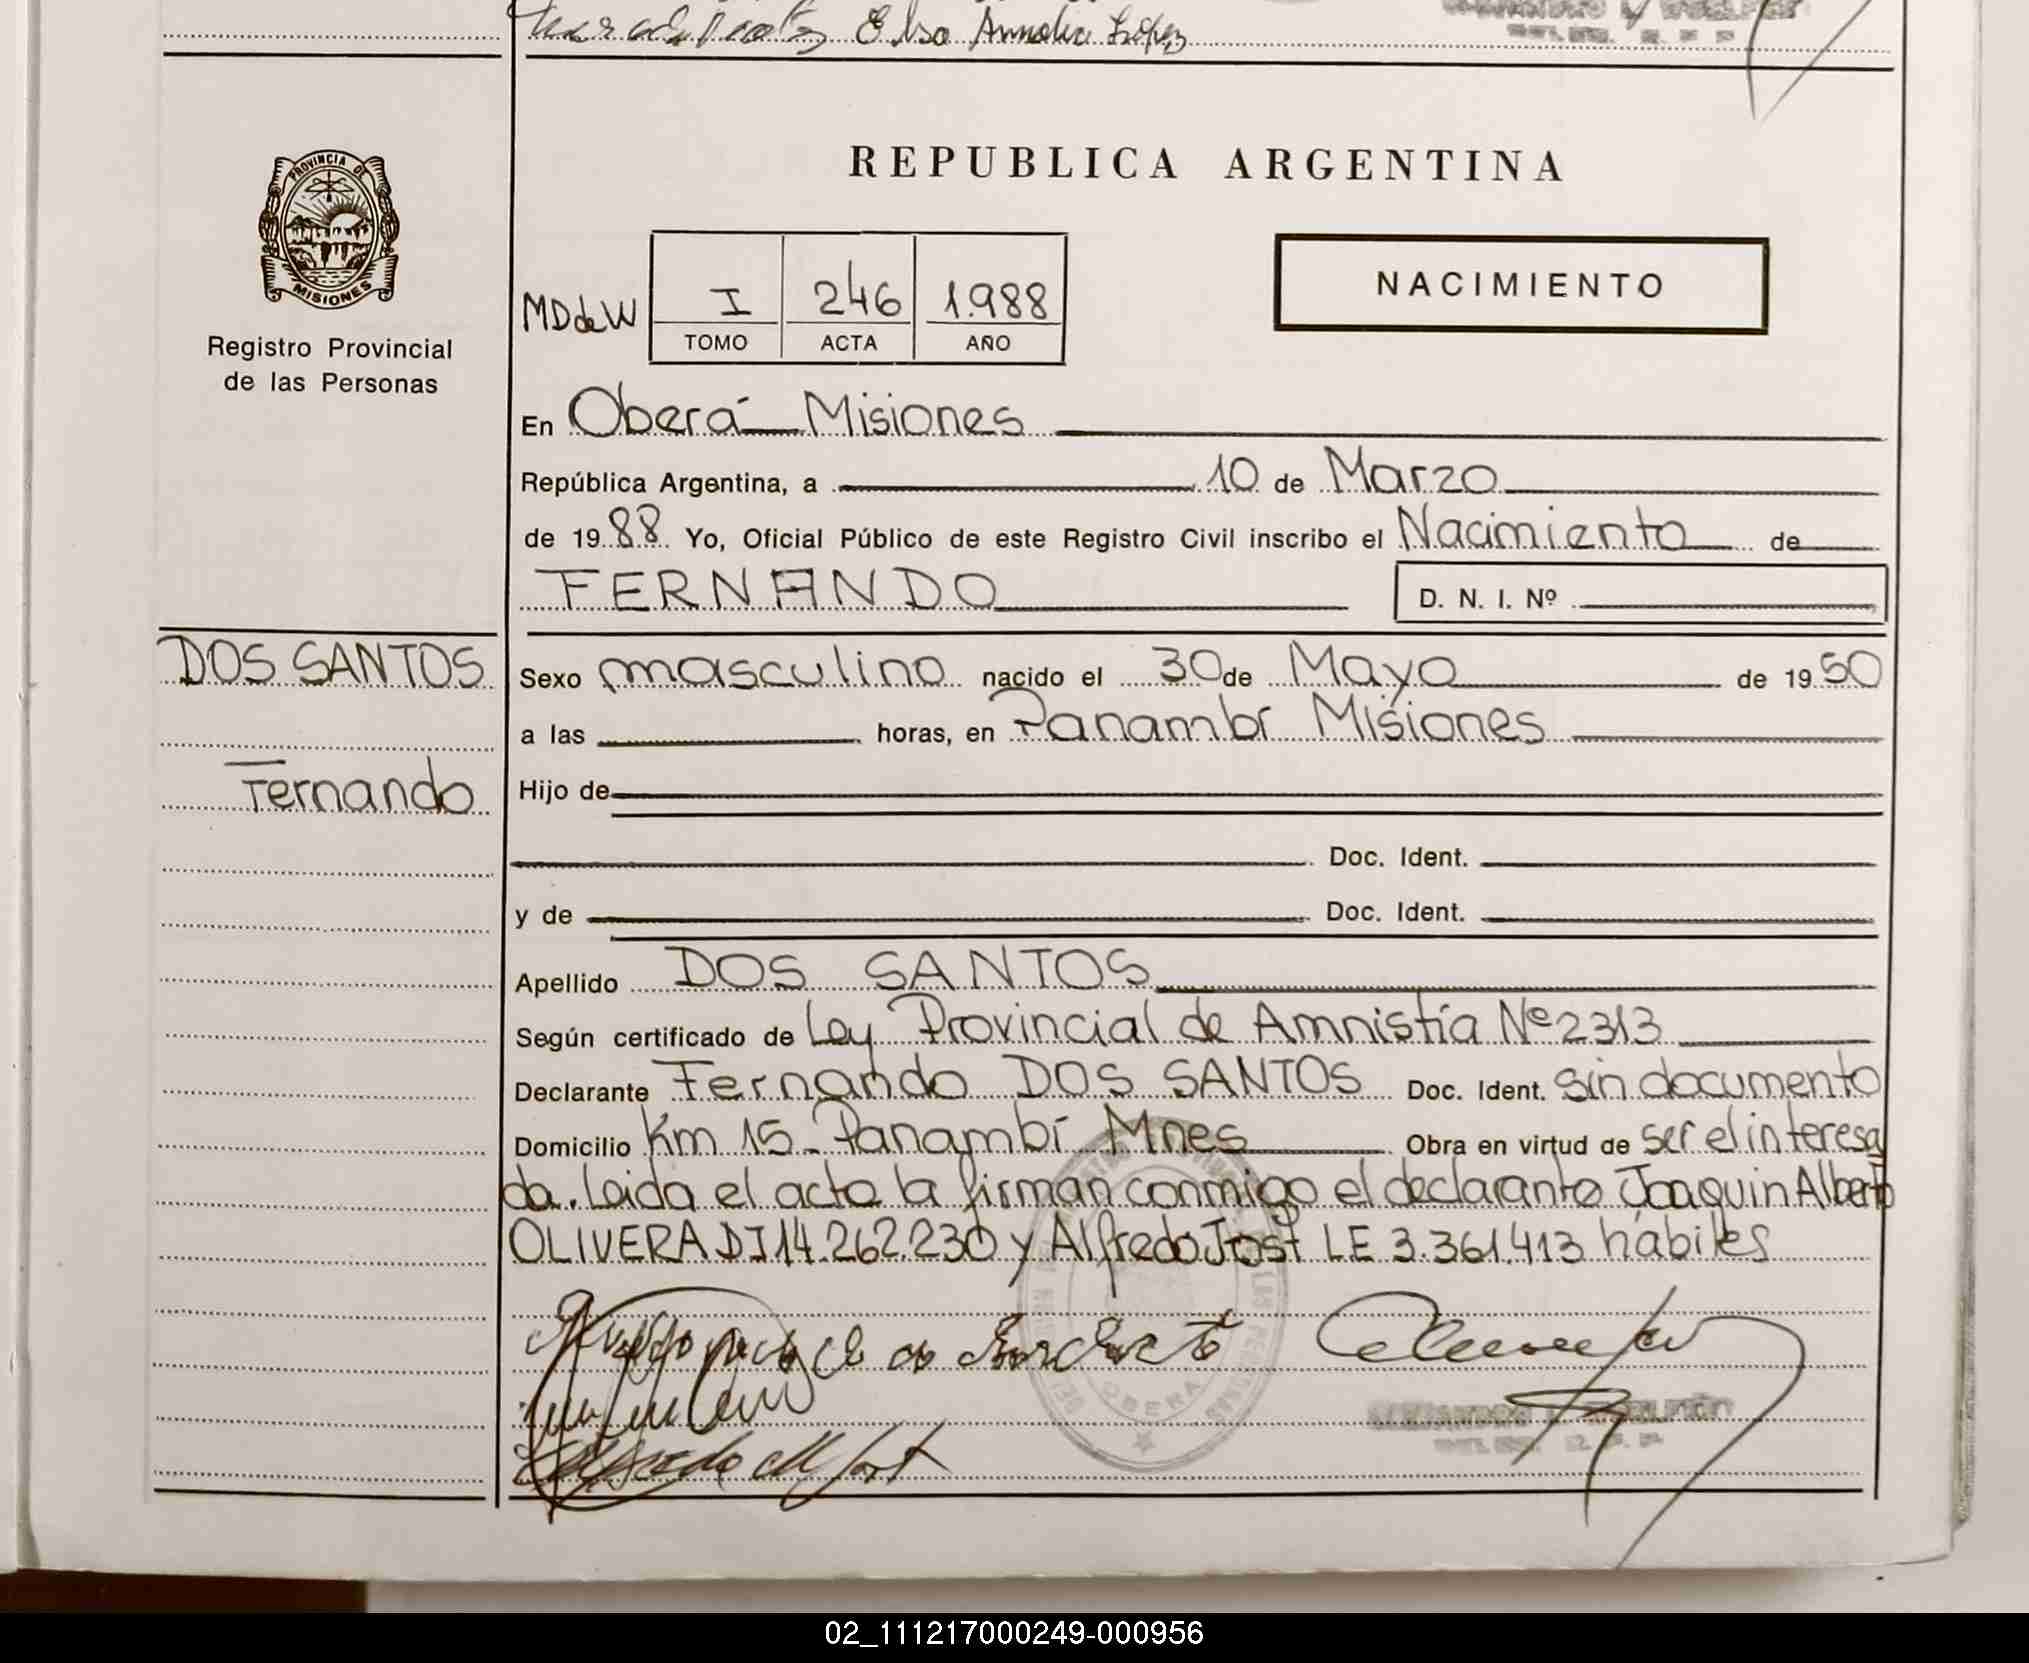 Elsa Amalia López
PROVINCIA DE
MISIONES
Registro Provincial
de las Personas
REPUBLICA ARGENTINA
NACIMIENTO
MDdeW I 246 1.988
TOMO ACTA AÑO
En Oberá Misiones
República Argentina, a 10 de Marzo
de 1988 Yo, Oficial Público de este Registro Civil inscribo el Nacimiento de
FERNANDO D. N. I. Nº
DOS SANTOS
Fernando
Sexo masculino nacido el 30 de Mayo de 1950
a las horas, en Panambí Misiones
Hijo de
Doc. Ident.
y de Doc. Ident.
Apellido DOS SANTOS
Según certificado de Ley Provincial de Amnistía Nº 2313
Declarante Fernando DOS SANTOS Doc. Ident. sin documento
Domicilio Km 15 - Panambí Mnes Obra en virtud de ser el interesa
do. Leida el acta la firman conmigo el declarante Joaquin Alberto
OLIVERA DI 14.262.230 y Alfredo Jost LE 3.361.413 hábiles
OBERA
02_111217000249-000956